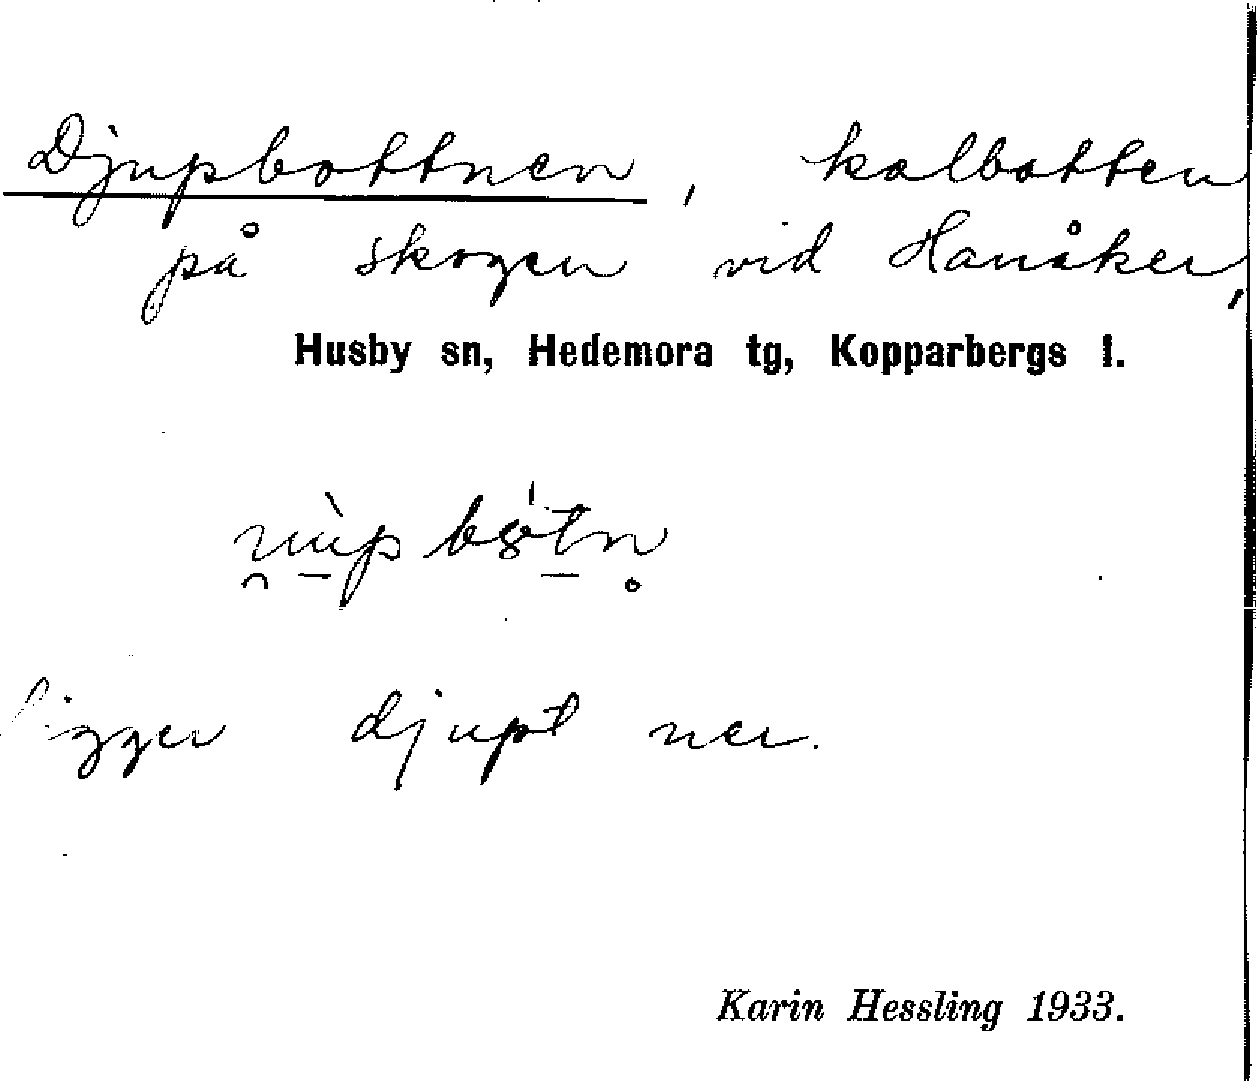 Djupbottnen, kolbotten
på skogen vid Hanåker,
Husby sn, Hedemora tg, Kopparbergs l.
ligger djupt ner.
Karin Hessling 1933.